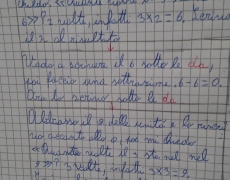 6»? 2 volte, infatti 3×2=6. Scrivo
il 2 al risultato
Vado a scrivere il 6 sotto le da,
poi faccio una sottrazione 6-6=0.
Ora lo scrivo sotto le da
Abbasso il 9 delle unità e lo
accanto allo 0, poi mi chiedo
«Quante volte il 3 sta nel nel
9»? 3 volte, infatti 3×3=9.